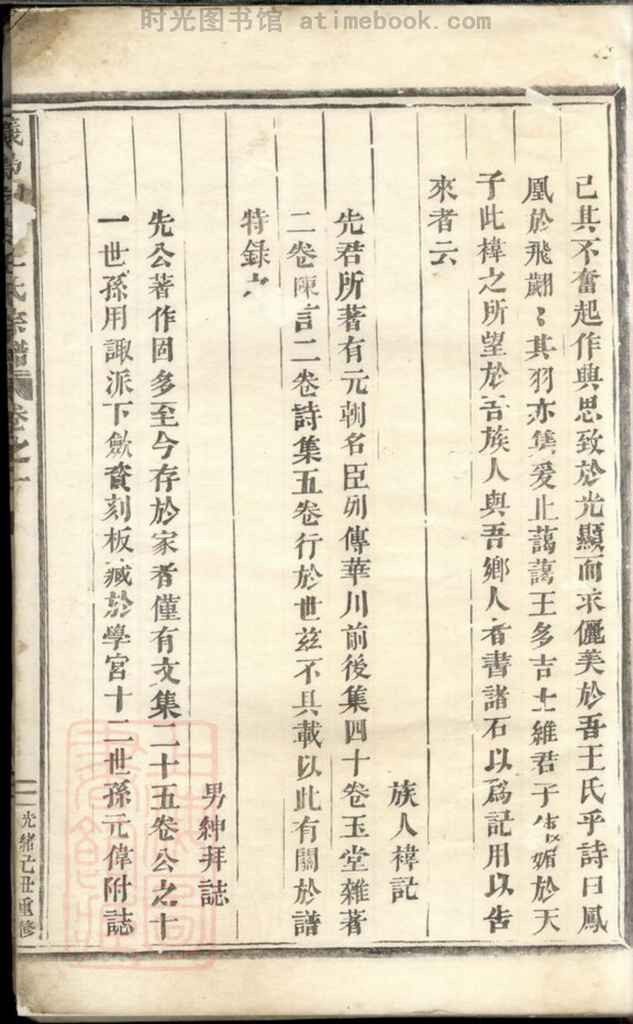 时光图书馆 atimebook.com
己其不奮起作興思致於光顯而求儷美於吾王氏乎詩曰鳳
凰於飛翽〻其羽亦集爰止藹藹王多吉士維君子使媚於天
子此禕之所望於吾族人與吾鄉人者書諸石以爲記用以告
來者云
族人禕記
先君所著有元朝名臣列傳華川前後集四十卷玉堂雜著
二卷陳言二卷詩集五卷行於世茲不具載以此有關於譜
特錄
男紳拜誌
先公著作固多至今存於家者僅有文集二十五卷公之十
一世孫用諏派下斂貲刻板藏於學宮十二世孫元偉附誌
王氏宗譜 卷之一
光緒己丑重修